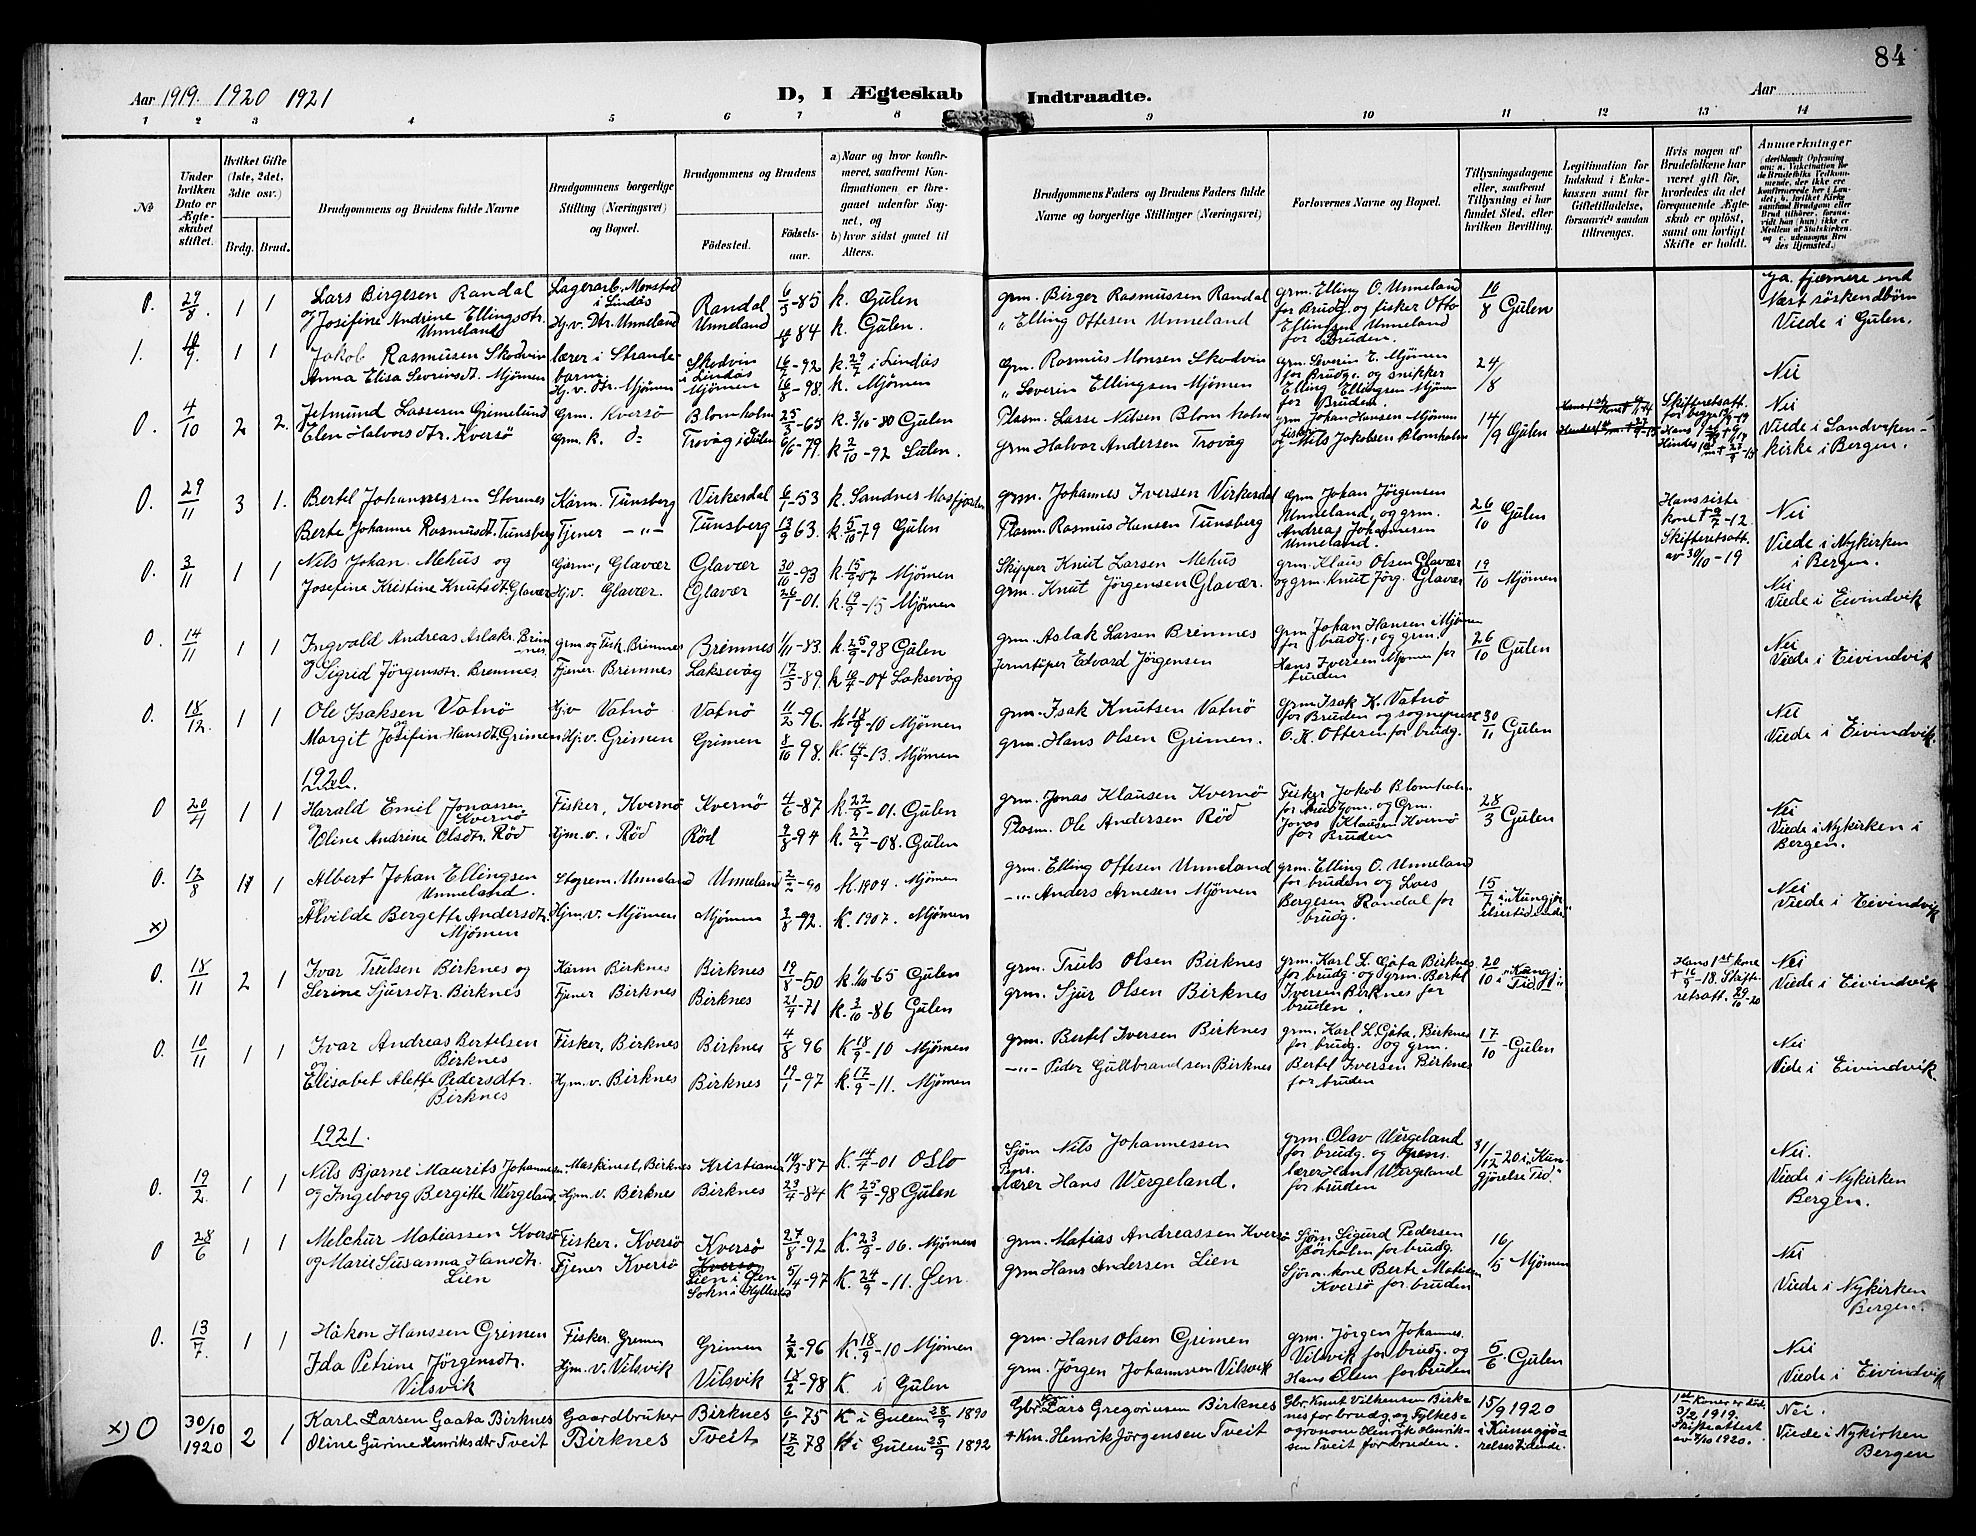 84
Aar 1919. 1920 1921
D, I Ægteskab Indtraadte.
Aar
1 2 3 4 5 6 7 8 9 10 11 12 13 14
№
Under hvilken Dato er Ægteskabet stiftet.
Hvilket Gifte (1ste, 2det, 3die osv.)
Brdg. Brud.
Brudgommens og Brudens fulde Navne
Brudgommens borgerlige Stilling (Næringsvei) og Bopæl.
Brudgommens og Brudens
Fødested.
Fødselsaar.
a) Naar og hvor konfirmeret, saafremt Konfirmationen er foregaaet udenfor Sognet, og
b) hvor sidst gaaet til Alters.
Brudgommens Faders og Brudens Faders fulde Navne og borgerlige Stillinger (Næringsvei)
Forlovernes Navne og Bopæl.
Tillysningsdagene eller, saafremt Tillysning ei har fundet Sted, efter hvilken Bevilling.
Legitimation for Indskud i Enkekassen samt for Giftetilladelse, forsaavidt saadan tiltrænges.
Hvis nogen af Brudefolkene har været gift før, hvorledes da det foregaaende Ægteskab er opløst, samt om lovligt Skifte er holdt.
Anmerkninger
0. 29/8. 1 1 Lars Birgesen Randal Lagerarb. Monstad i Lindås Randal 6/5-85 k. Gulen grm. Birger Rasmussen Randal grm. Elling O. Unneland for Brudg. og fisker Otto Ellingsen Unneland for Bruden. 10/8 Gulen Ja, fjærnere end Nært søskendbørn
og Josifine Andrine Ellingsdtr. Unneland Hj.v. Dtr. Unneland Unneland 4/8 84 k. Gulen. " Elling Ottesen Unneland Viede i Gulen.
1. 1 1 Jakob Rasmusen Skodvin lærer i Strandebarm Skodvin i Lindås 16/7-92 k. 29/7 i Lindås Grm. Rasmus Monsen Skodvin grm. Severin E. Mjømen for Brudg. og snipper Elling Ellingsen Mjømen for Bruden. 24/8 Nei
Anna Elisa Sevrinsdt. Mjømen Hj.v. dtr. Mjømen Mjømen 16/8-98. k. Mjømen " Severin Ellingsen Mjømen
0. 4/10 2 2. Jetmund Lassesen Grimelund Grm. Kversø Blomholm 25/3-65 k. 3/10-80 Gulen Plasm. Lasse Nilsen Blomholm grm. Johan Hansen Mjømen fisker og Nils Jakobsen Blomholm 14/9 Gulen Nei
Elen Halvorsdtr. Kversø Grm. k. do Trovåg i Gulen 6/6-79. k 2/10-92 Gulen. Grm Halvor Andersen Trovåg Viede i Sandvikenkirke i Bergen.
0. 29/11 3 1. Bertel Johannessen Stornes Kårm. Tunsberg Virkesdal 6/1-53 k. Sandnes Masfjorden grm. Johannes Iversen Virkesdal Grm Johan Jörgensen Unneland, og grm. Andreas Johannesen Unneland. 26/10 Gulen Hans siste kone + 9/7-12. Skifteretsatt. av 30/10-19 Nei
Berte Johanne Rasmusdt. Tunsberg Tjener -"- Tunsberg 13/9 63. k. 5/10-79 Gulen Plasm. Rasmus Hansen Tunsberg Viede i Nykirken i Bergen.
0. 3/11 1 1 Nils Johan Mehus og Garm, Glavær Glavær 30/10-93 k 15/9-07 Mjømen Skipper Knut Larsen Mehus grm. Klaus Olsen Glavær og grm. Knut Jörg. Glavær 19/10 Mjømen Nei
Josefine Kristine Knutsdt. Glavær Hj.v. Glavær. Glavær 26/1-01. k. 19/9-15 Mjømen grm. Knut Jörgensen Glavær. Viede i Eivindvik
0. 14/11 1 1 Ingvald Andreas Aslaks. Brimnes grm og Fisk. Brimnes Brimnes 1/11-83. k. 25/9-98 Gulen grm. Aslak Larsen Brimnes Grm Johan Hansen Mjømen for brudg., og grm. Hans Iversen Mjømen for bruden 26/10 Gulen Nei
og Sigrid Jörgensdtr. Bremnes. Tjener Brimnes Laksevåg 17/5-89. k 10/4-04 Laksevåg Jernstöper Edvard Jörgensen Viede i Eivindvik
0. 18/12. 1 1 Ole Isaksen Vatnö Hj.v Vatnö Vatnö 11/2-96. k. 18/9-10 Mjømen grm. Isak Knutsen Vatnö grm Isak K. Vatnö for Bruden og sogneprest O. K. Ottesen for brudg. 30/11 Gulen Nei
og Margit Josifin Hansdt. Grimen Hj.v. Grimen Grimen 8/10 98. K. 14/9-13. Mjømen grm. Hans Olsen Grimen. Viede i Eivindvik.
1920.
0 1 1 Harald Emil Jonassen Kvernö Fisker, Kvernö Kvernö 4/6-87 k. 22/9-01. Gulen grm. Jonas Klausen Kvernö Fisker Jakob Blomholm for brudgom. og Grm. Jonas Klausen Kvernö for Bruden 28/3 Gulen Nei
og Oline Andrine Olsdtr. Röd Hjm.v. i Röd Röd 9/8-94 k. 27/9-08. Gulen Plasm. Ole Andersen Röd Viede i Nykirken i Bergen.
0. 12/8 1 Albert Johan Ellingsen Unneland. Unneland 2/2-90 K. 1904. Mjømen grm. Elling Ottesen Unneland grm. Elling O. Unneland for bruden og Lars Bergesen Randal for brudg. 15/7 i "Kungjørelsestidende" Nei
x) og Alvilde Bergette Andersdtr. Mjømen Hjm.v. Mjømen Mjømen 2/8-92. K. 1907. Mjømen -"- Anders Arnesen Mjømen Viede i Eivindvik
0. 18/11 2 1 Ivar Trulsen Birknes og Kårm Birknes Birknes 19/8-50 k. 1/10 65 Gulen grm. Truls Olsen Birknes grm. Karl L. Gåta Birknes for brudg. og grm. Bertel Iversen Birknes for bruden. 20/10 i "Kungj. Tid." Hans 1st kone + 16/9-18. Skifteretsatt. 29/10-20 Nei
Serine Sjursdtr. Birknes Tjener Birknes Birknes 21/4-71 k. 3/10-86 Gulen grm. Sjur Olsen Birknes Viede i Eivindvik
0. 10/11 1 1 Ivar Andreas Bertelsen Birknes Fisker, Birknes Birknes 4/8 96 K 18/9-10 Mjømen grm. Bertel Iversen Birknes grm. Karl L. Gåta, Birknes for brudg. og grm. Bertel Iversen Birknes for bruden 17/10-Gulen Nei
og Elisabet Alette Pedersdtr. Birknes Hjm.v. Birknes Birknes 19/1-97 k. 17/9-11. Mjømen -"- Peder Gullbrandsen Birknes Viede i Eivindvik.
1921.
0. 19/2. 1 1 Nils Bjarne Maurits Johannesen Maskinist, Birknes Kristiania 19/3-87 K. 14/4-01 Oslo Sjöm Nils Johannessen grm. Olav Wergeland for brudg. og pens. lærer Hans Wergeland for bruden 31/12-20 i "Kungjørelse Tid." Nei.
og Ingeborg Bergitte Wergeland Hjm.v. Birknes Birknes 23/4-84 K 25/9-98 Gulen Pens. lærer Hans Wergeland. Viede i Nykirken Bergen.
0 28/6 1 1 Melchur Matiassen Kversö Fisker. Kversö Kversö 27/8-92 K. 23/9-06. Mjømen grm. Matias Andreassen Kversö Sjöm. Sigurd Pedersen Börholm for brudg. Sjöm.kone Berte Matisen Kversö for bruden 16/5 Mjømen Nei
og Marie Susanna Hansdtr. Lien Tjener Kversö Lien i Øen Sokn i Hyllestad 5/4-97 K. 24/9-11. Øen. grm Hans Andersen Lien Viede i Nykirken Bergen.
0. 13/7 1 1 Håkon Hanssen Grimen Fisker. Grimen Grimen 2/2-96 K. 18/9-10 Mjømen grm. Hans Olsen Grimen grm. Jörgen Johannes. Vilsvik for brudg. og Hans Olsen for bruden 5/6 Gulen Nei
Ida Petrine Jörgensdtr. Vilsvik Hjm.v. Vilsvik Vilsvik 18/2-98 K. i Gulen grm. Jörgen Johannssen Vilsvik Viede i Eivindvik
x) 0 30/10 1920 2 1 Karl Larsen Gaata Birknes Gaardbruker Birknes 6/1 75 K i Gulen 28/9 1890 Gbr. Lars Gregoriusen Birknes Gbr Knut Vilhemsen Birknes for brudg. og Fylkesagronom Henrik Henriksen Tveit for bruden. 15/9 1920 i Kunngjørelsestidende. 1st Kone er död 3/2 1919. Skifteattest av 7/10 1920. Nei.
Oline Gurine Henriksdtr Tveit Birknes Tveit 17/2 78 K i Gulen 25/9 1892 Henrik Jörgensen Tveit Viede i Nykirken Bergen